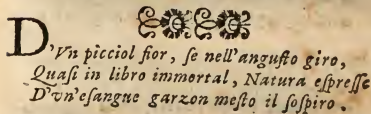 D'Vn picciol fior, ſe nell'anguſto giro,
Quaſi in libro immortal, Natura eſpreſſe
D'vn'eſangue garzon meſto il ſoſpiro,